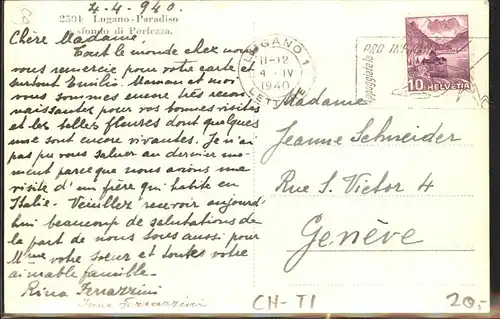 4-4-940.
2591 Lugano-Paradiso
sfondo di Porlezza.
Chère Madame,
Tout le monde chez nous
vous remercie pour votre carte et
surtout Emilio. Maman et moi
vous sommes encore très recon-
naissantes pour vos bonnes visites
et les belles fleures dont quelques
une sont encore vivantes. Je n'ai
pas pu vous saluer au dernier mo-
ment parce que nous avions une
visite d'un frère qui habite en
Italie. Veuillez recevoir aujourd'
hui beaucoup de salutations de
la part de nous tous aussi pour
Mme votre sœur et toutes votre
aimable famille.
Rina Ferrazzini
Ferrazzini
LUGANO 1
11-12
4. IV
1940
PRO
10 HELVETIA
Madame
Jeanne Schneider
Rue S. Victor 4
Genève
CH-TI
20.-